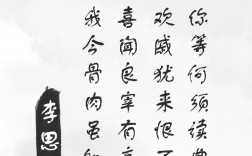 你等何须读典
欢戚犹来恨不
喜闻良宰有言
我今骨肉虽
李思